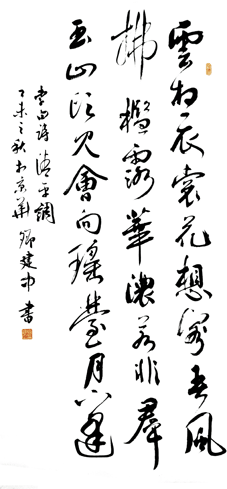 雲想衣裳花想容春風
拂檻露華濃若非群
玉山頭見會向瑤臺月下逢
李白詩 清平調
乙未之秋於京華 建中書